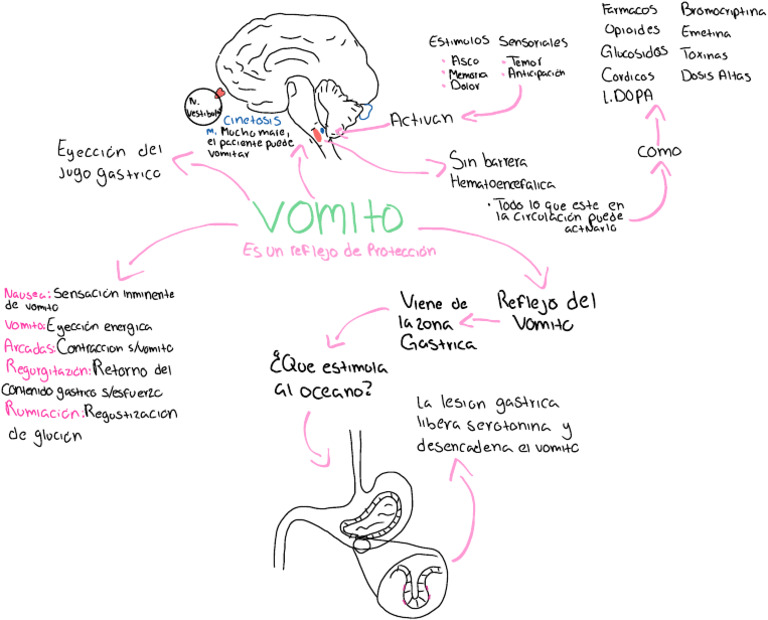 Farmacos
Opioides
Glucosidos
Cordicos
L.DOPA
Bromocriptina
Emetina
Toxinas
Dosis Altas
Estimulos Sensoriales
· Asco
· Memoria
· Dolor
· Temor
· Anticipación
Activan
N.
Vestibular
Cinetosis
M. Mucho mare,
el paciente puede
vomitar
Eyección del
Jugo gastrico
Sin barrera
Hematoencefalica
· Todo lo que este en
la circulación puede
activarlo
como
VOMITO
Es un reflejo de Protección
Nausea: Sensación inminente
de vomito
Vomito: Eyección energica
Arcadas: Contraccion s/vomito
Regurgitazión: Retorno del
Contenido gastrico s/esfuerzo
Rumiación: Regustización
de glución
Reflejo del
Vomito
Viene de
la zona
Gastrica
¿Que estimula
al oceano?
La lesion gastrica
libera serotonina y
desencadena el vomito